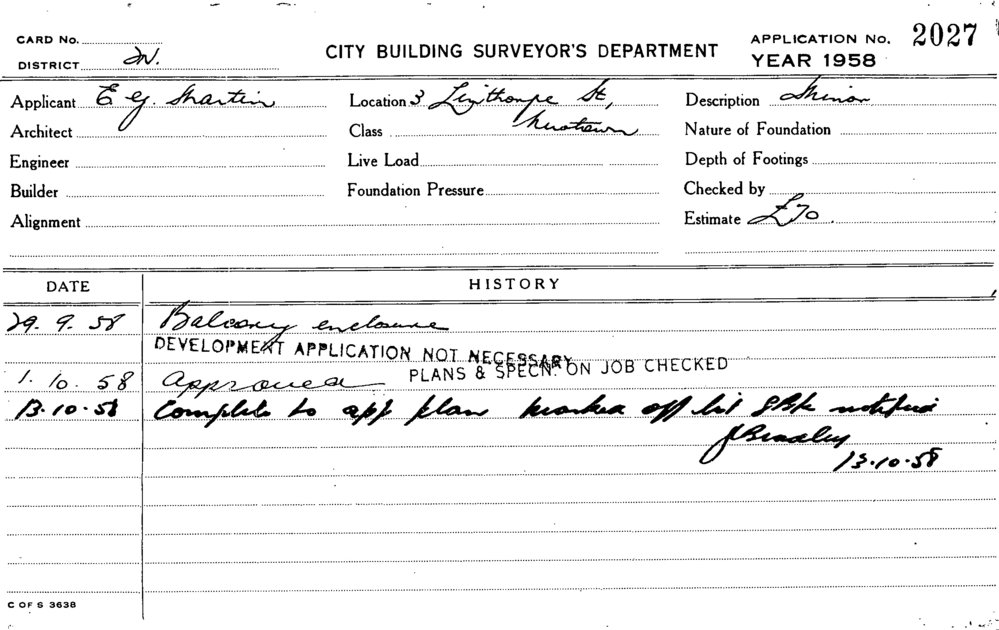 CARD No.
DISTRICT N.
CITY BUILDING SURVEYOR'S DEPARTMENT
APPLICATION No. 2027
YEAR 1958
Applicant E G Martin
Location 3 Linthorpe St,
Newtown
Description Minor
Architect
Class
Nature of Foundation
Engineer
Live Load
Depth of Footings
Builder
Foundation Pressure
Checked by
Alignment
Estimate £70
DATE
HISTORY
29. 9. 58 Balcony enclosure
DEVELOPMENT APPLICATION NOT NECESSARY
PLANS & SPECN. ON JOB CHECKED
1. 10. 58 Approved
13.10.58 Complete to app plan marked off list notified
13.10.58
C OF S 3638